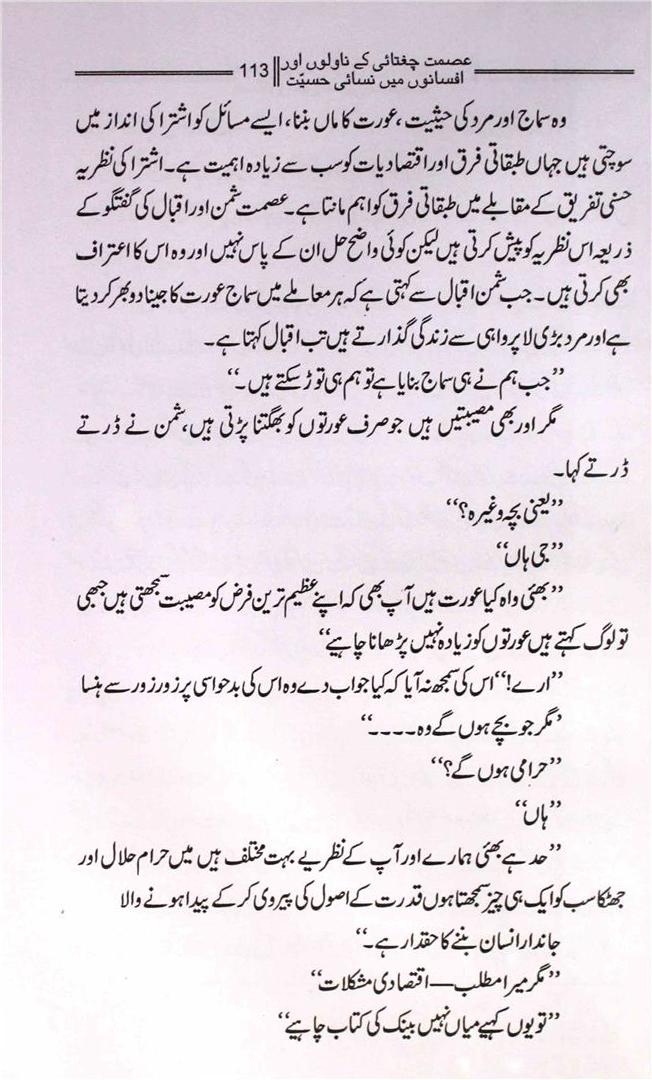 عصمت چغتائی کے ناولوں اور
افسانوں میں نسائی حسیّت
113
وہ سماج اور مرد کی حیثیت ، عورت کا ماں بننا، ایسے مسائل کو اشتراکی انداز میں
سوچتی ہیں جہاں طبقاتی فرق اور اقتصادیات کو سب سے زیادہ اہمیت ہے۔ اشتراکی نظریہ
جنسی تفریق کے مقابلے میں طبقاتی فرق کو اہم مانتا ہے۔ عصمت شمن اور اقبال کی گفتگو کے
ذریعہ اس نظریہ کو پیش کرتی ہیں لیکن کوئی واضح حل ان کے پاس نہیں اور وہ اس کا اعتراف
بھی کرتی ہیں۔ جب شمن اقبال سے کہتی ہے کہ ہر معاملے میں سماج عورت کا جینا دوبھر کردیتا
ہے اور مرد بڑی لاپرواہی سے زندگی گذارتے ہیں تب اقبال کہتا ہے۔
’’جب ہم نے ہی سماج بنایا ہے تو ہم ہی توڑ سکتے ہیں۔‘‘
مگر اور بھی مصیبتیں ہیں جو صرف عورتوں کو بھگتنا پڑتی ہیں، شمن نے ڈرتے
ڈرتے کہا۔
’’یعنی بچہ وغیرہ؟‘‘
’’جی ہاں‘‘
’’بھئی واہ کیا عورت ہیں آپ بھی کہ اپنے عظیم ترین فرض کو مصیبت سمجھتی ہیں جبھی
تو لوگ کہتے ہیں عورتوں کو زیادہ نہیں پڑھانا چاہیے‘‘
’’ارے!‘‘ اس کی سمجھ نہ آیا کہ کیا جواب دے وہ اس کی بدحواسی پر زور زور سے ہنسا
’مگر جو بچے ہوں گے وہ۔۔۔۔‘‘
’’حرامی ہوں گے؟‘‘
’’ہاں‘‘
’’حد ہے بھئی ہمارے اور آپ کے نظریے بہت مختلف ہیں میں حرام حلال اور
جھٹکا سب کو ایک ہی چیز سمجھتا ہوں قدرت کے اصول کی پیروی کر کے پیدا ہونے والا
جاندار انسان بننے کا حقدار ہے۔‘‘
’’مگر میرا مطلب — اقتصادی مشکلات‘‘
’’تو یوں کہیے میاں نہیں بینک کی کتاب چاہیے‘‘